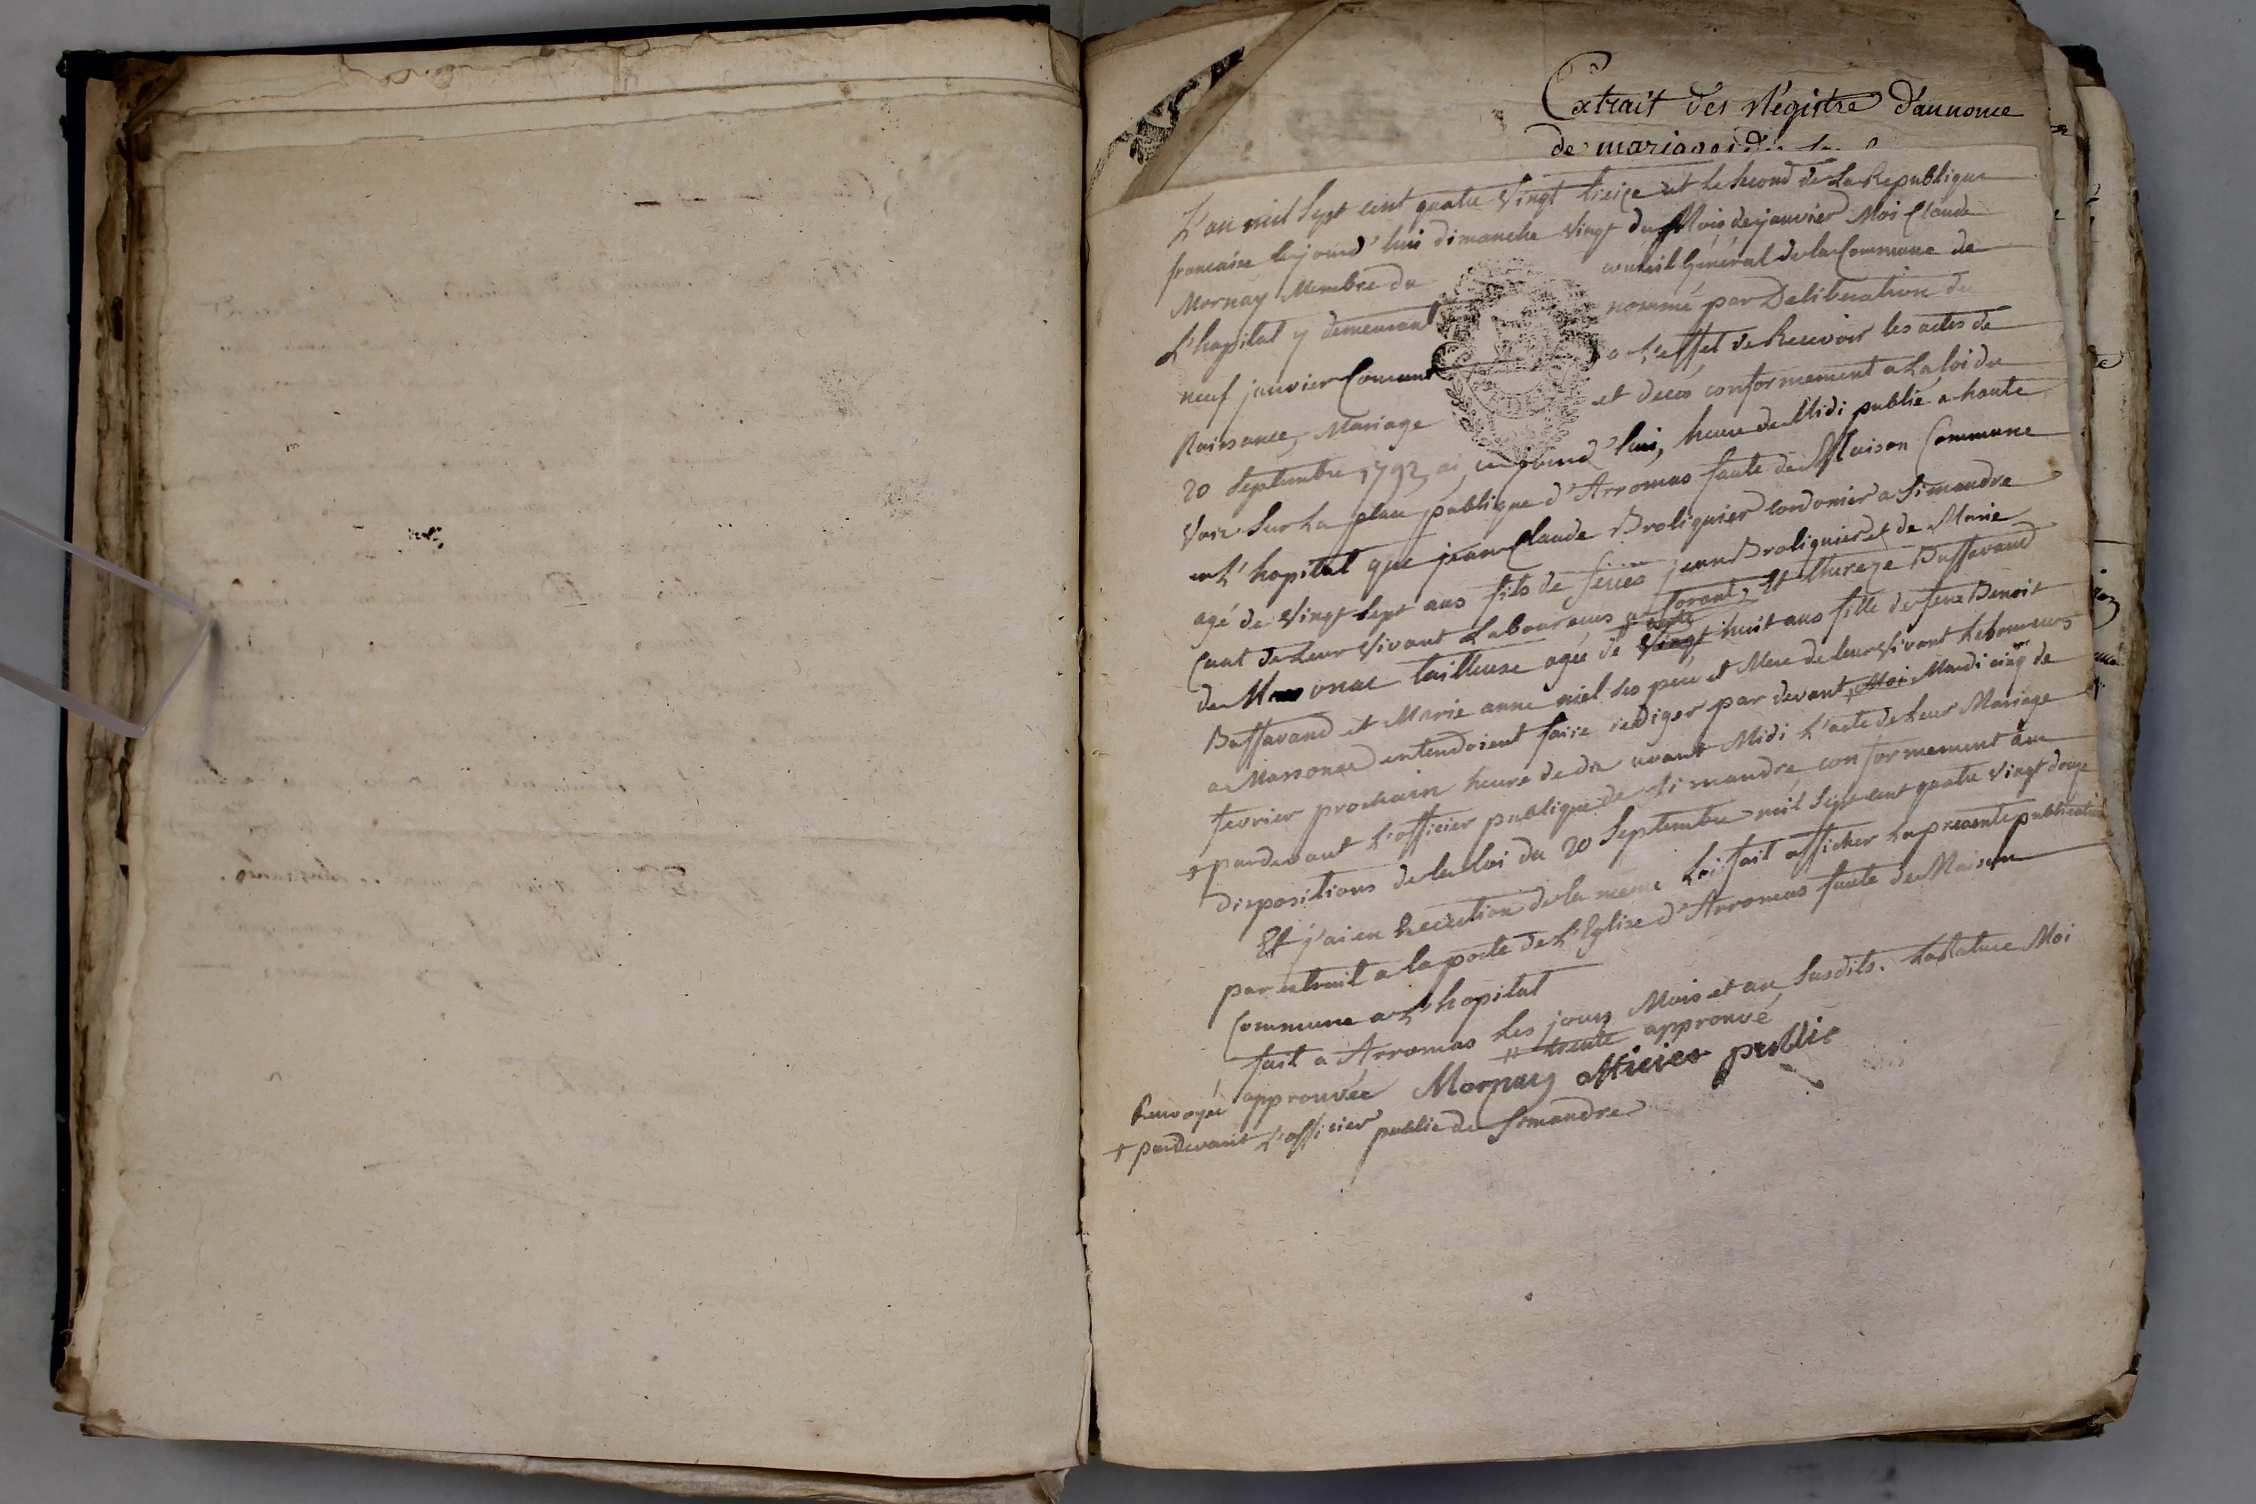 Extrait des Régistre d'annonce
de mariage
L'an mil Sept cent quatre Vingt treize et le Second de La Republique
francaise cejourd'hui dimanche vingt du Mois de janvier Moi Claude
Mornay Membre du conseil Général de la Commune de
L'hopital y demeurant nommé par Deliberation du
neuf janvier Courant a L'effet de Recevoir les actes de
Naissance, Mariage et deces conformement a La loi du
20 Septembre 1792 ai cejourd'hui, heure de Midi publié a haute
Voix Sur La place publique d'Arromas faute de Maison Commune
en L'hopital que jean Claude Broliquier cordonier a Simandre
agé de Vingt Sept ans fils de feües jean Broliquier et de Marie
Cuat de Leur Vivant Laboureurs a Corant, Et thereze Buffavand
de Marsonas tailleuse agée de Vingt huit ans fille de feux Benoit
Buffavand et Marie anne niel Ses pere et Mere de leur Vivant Laboureurs
a Massonas entendoient faire rediger par devant Moi Mardi cinq de
fevrier prochain heure de dix avant Midi L'acte de Leur Mariage
+ pardevant L'officier publique de Simandre conformement aux
Dispositions de la Loi du 20 Septembre mil Sept cent quatre Vingt douze
Et j'ai en Execution de la meme Loi fait afficher La presente publication
par extrait a la porte de L'Eglise d'Arromas faute de Maison
Commune a L'hopital
fait a Arromas Les jours Mois et an Susdits. La Rature Moi
approuvée # trente approuvé
Mornay officier public
Renvoyée
+ pardevant L'officier public de Simandre